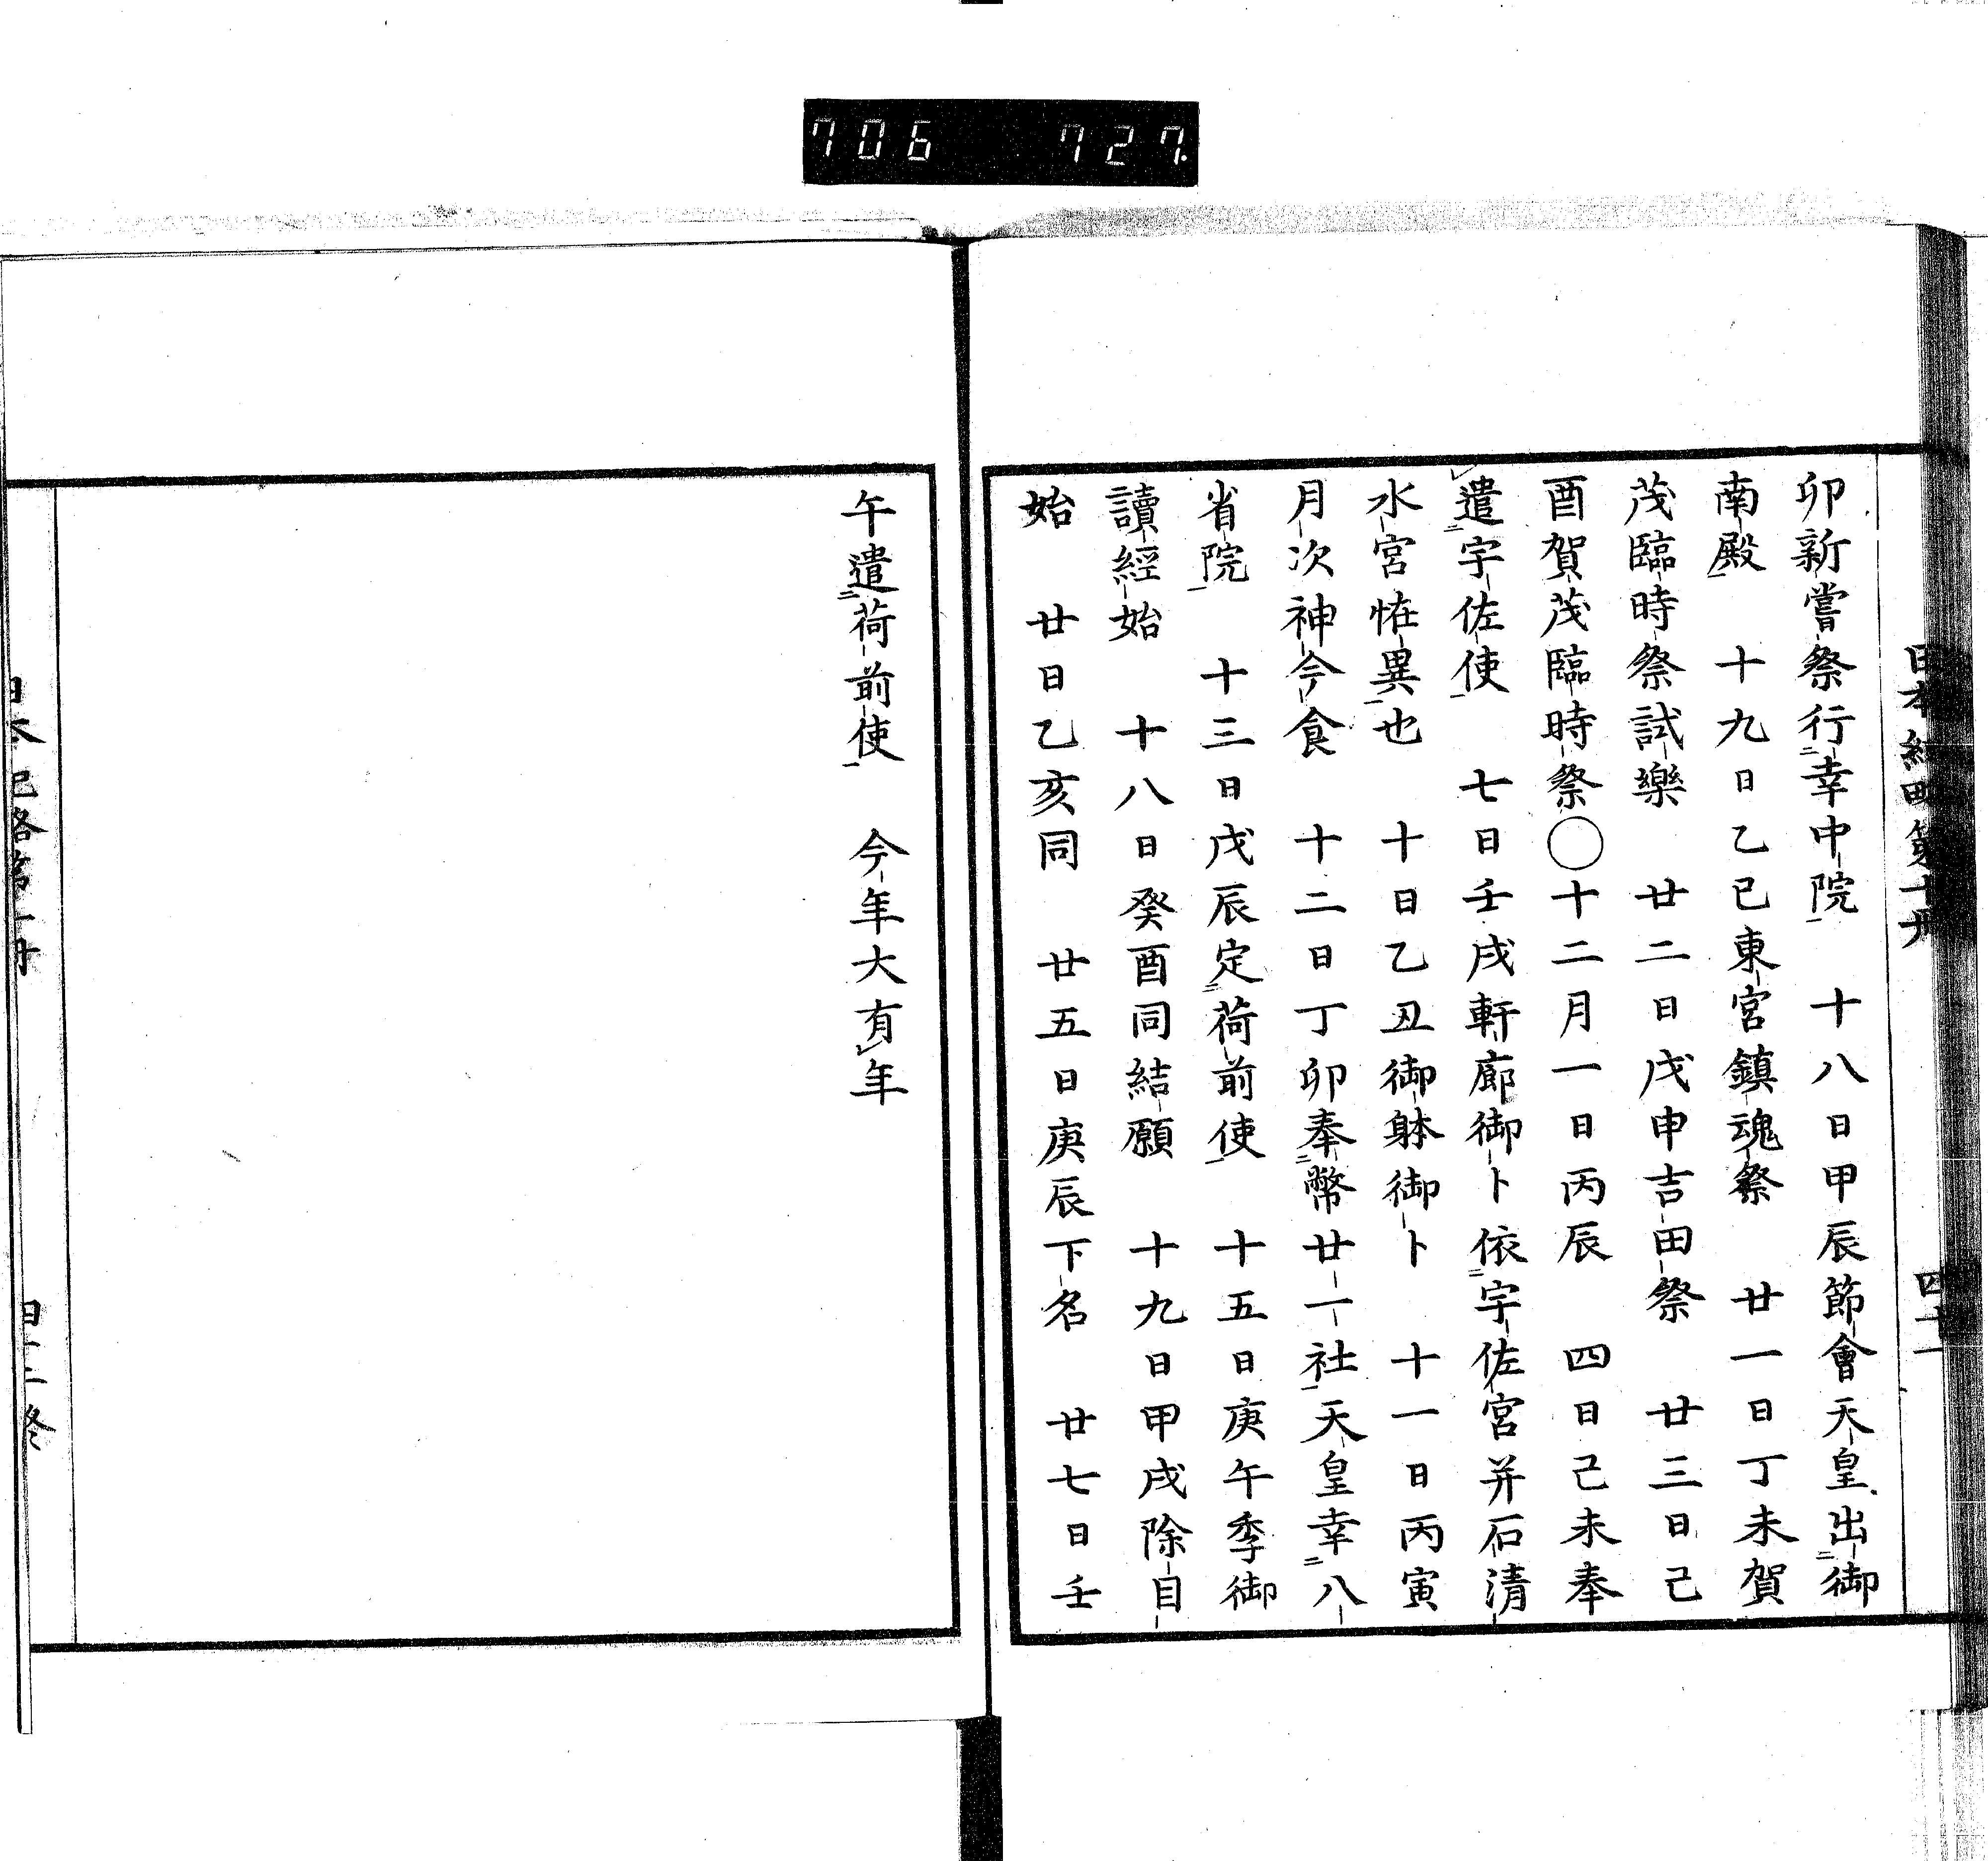 706 727.
日本紀略第十冊 四十一
卯新嘗祭行二幸中院一 十八日甲辰節會天皇出二御
南殿一 十九日乙巳東宮鎮魂祭 廿一日丁未賀
茂臨時祭試樂 廿二日戊申吉田祭 廿三日己
酉賀茂臨時祭○十二月一日丙辰 四日己未奉
遣二宇佐使一 七日壬戌軒廊御卜依二宇佐宮并石清
水宮恠異一也 十日乙丑御躰御卜 十一日丙寅
月次神今食 十二日丁卯奉二幣廿一社一天皇幸二八
省院一 十三日戊辰定二荷前使一 十五日庚午季御
讀經始 十八日癸酉同結願 十九日甲戌除目
始 廿日乙亥同 廿五日庚辰下名 廿七日壬
午遣二荷前使一 今年大有年